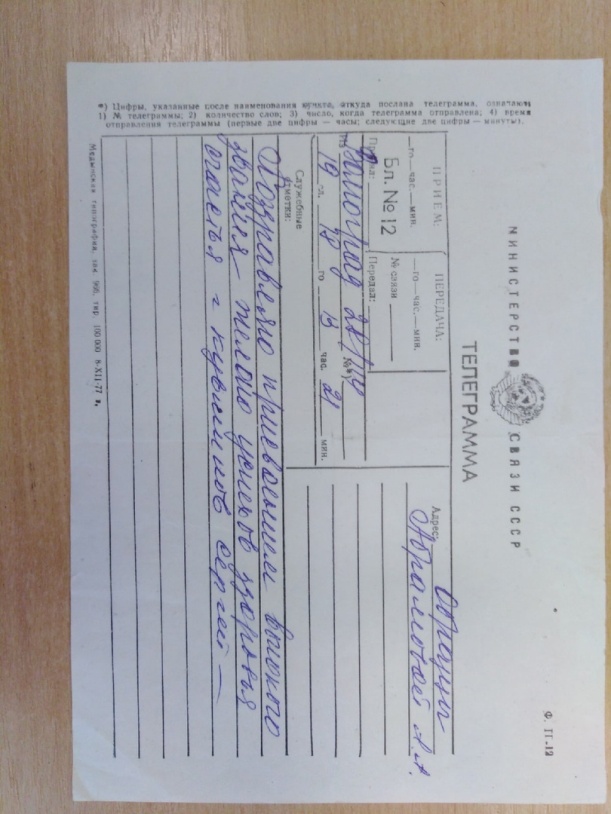 Ф. ТГ-12
МИНИСТЕРСТВО СВЯЗИ СССР
ТЕЛЕГРАММА
ПРИЕМ:
го час. мин.
Бл. № 12
Принял:
ПЕРЕДАЧА:
го час. мин.
№ связи
Передал:
Адрес:
Абрамовой А. А.
Из
№
19 сл. го 13 час. 21 мин.
Служебные отметки:
Поздравляю присвоением высокого
звания – желаю успехов здоровья
счастья =
сергей –
*) Цифры, указанные после наименования пункта, откуда послана телеграмма, означают:
1) № телеграммы; 2) количество слов; 3) число, когда телеграмма отправлена; 4) время
отправления телеграммы (первые две цифры — часы; следующие две цифры — минуты).
Медынская типография, зак. 998, тир. 100 000 8-XII-77 г.